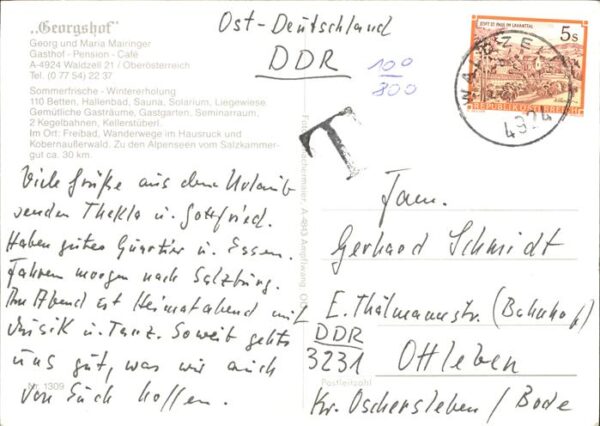 „Georgshof"
Georg und Maria Mairinger
Gasthof - Pension - Café
A-4924 Waldzell 21 / Oberösterreich
Tel. (0 77 54) 22 37
Sommerfrische - Wintererholung
110 Betten, Hallenbad, Sauna, Solarium, Liegewiese
Gemütliche Gasträume, Gastgarten, Seminarraum,
2 Kegelbahnen, Kellerstüberl.
Im Ort: Freibad, Wanderwege im Hausruck und
Kobernaußerwald. Zu den Alpenseen vom Salzkammer-
gut ca. 30 km.
Viele Grüße aus dem Urlaub
senden Thekla u. Gottfried.
Haben gutes Quartier u. Essen.
Fahren morgen nach Salzburg.
Am Abend ist Heimatabend mit
Musik u. Tanz. Soweit gehts
uns gut, was wir auch
von Euch hoffen.
Nr. 1309
A-4843 Ampflwang
Ost-Deutschland
DDR
100
800
T
STIFT ST. PAUL IM LAVANTTAL
5s
REPUBLIK ÖSTERREICH
4924
Fam.
Gerhard Schmidt
E. Thälmannstr. (Bahnhof)
DDR
3231 Ottleben
Postleitzahl
Kr. Oschersleben / Bode